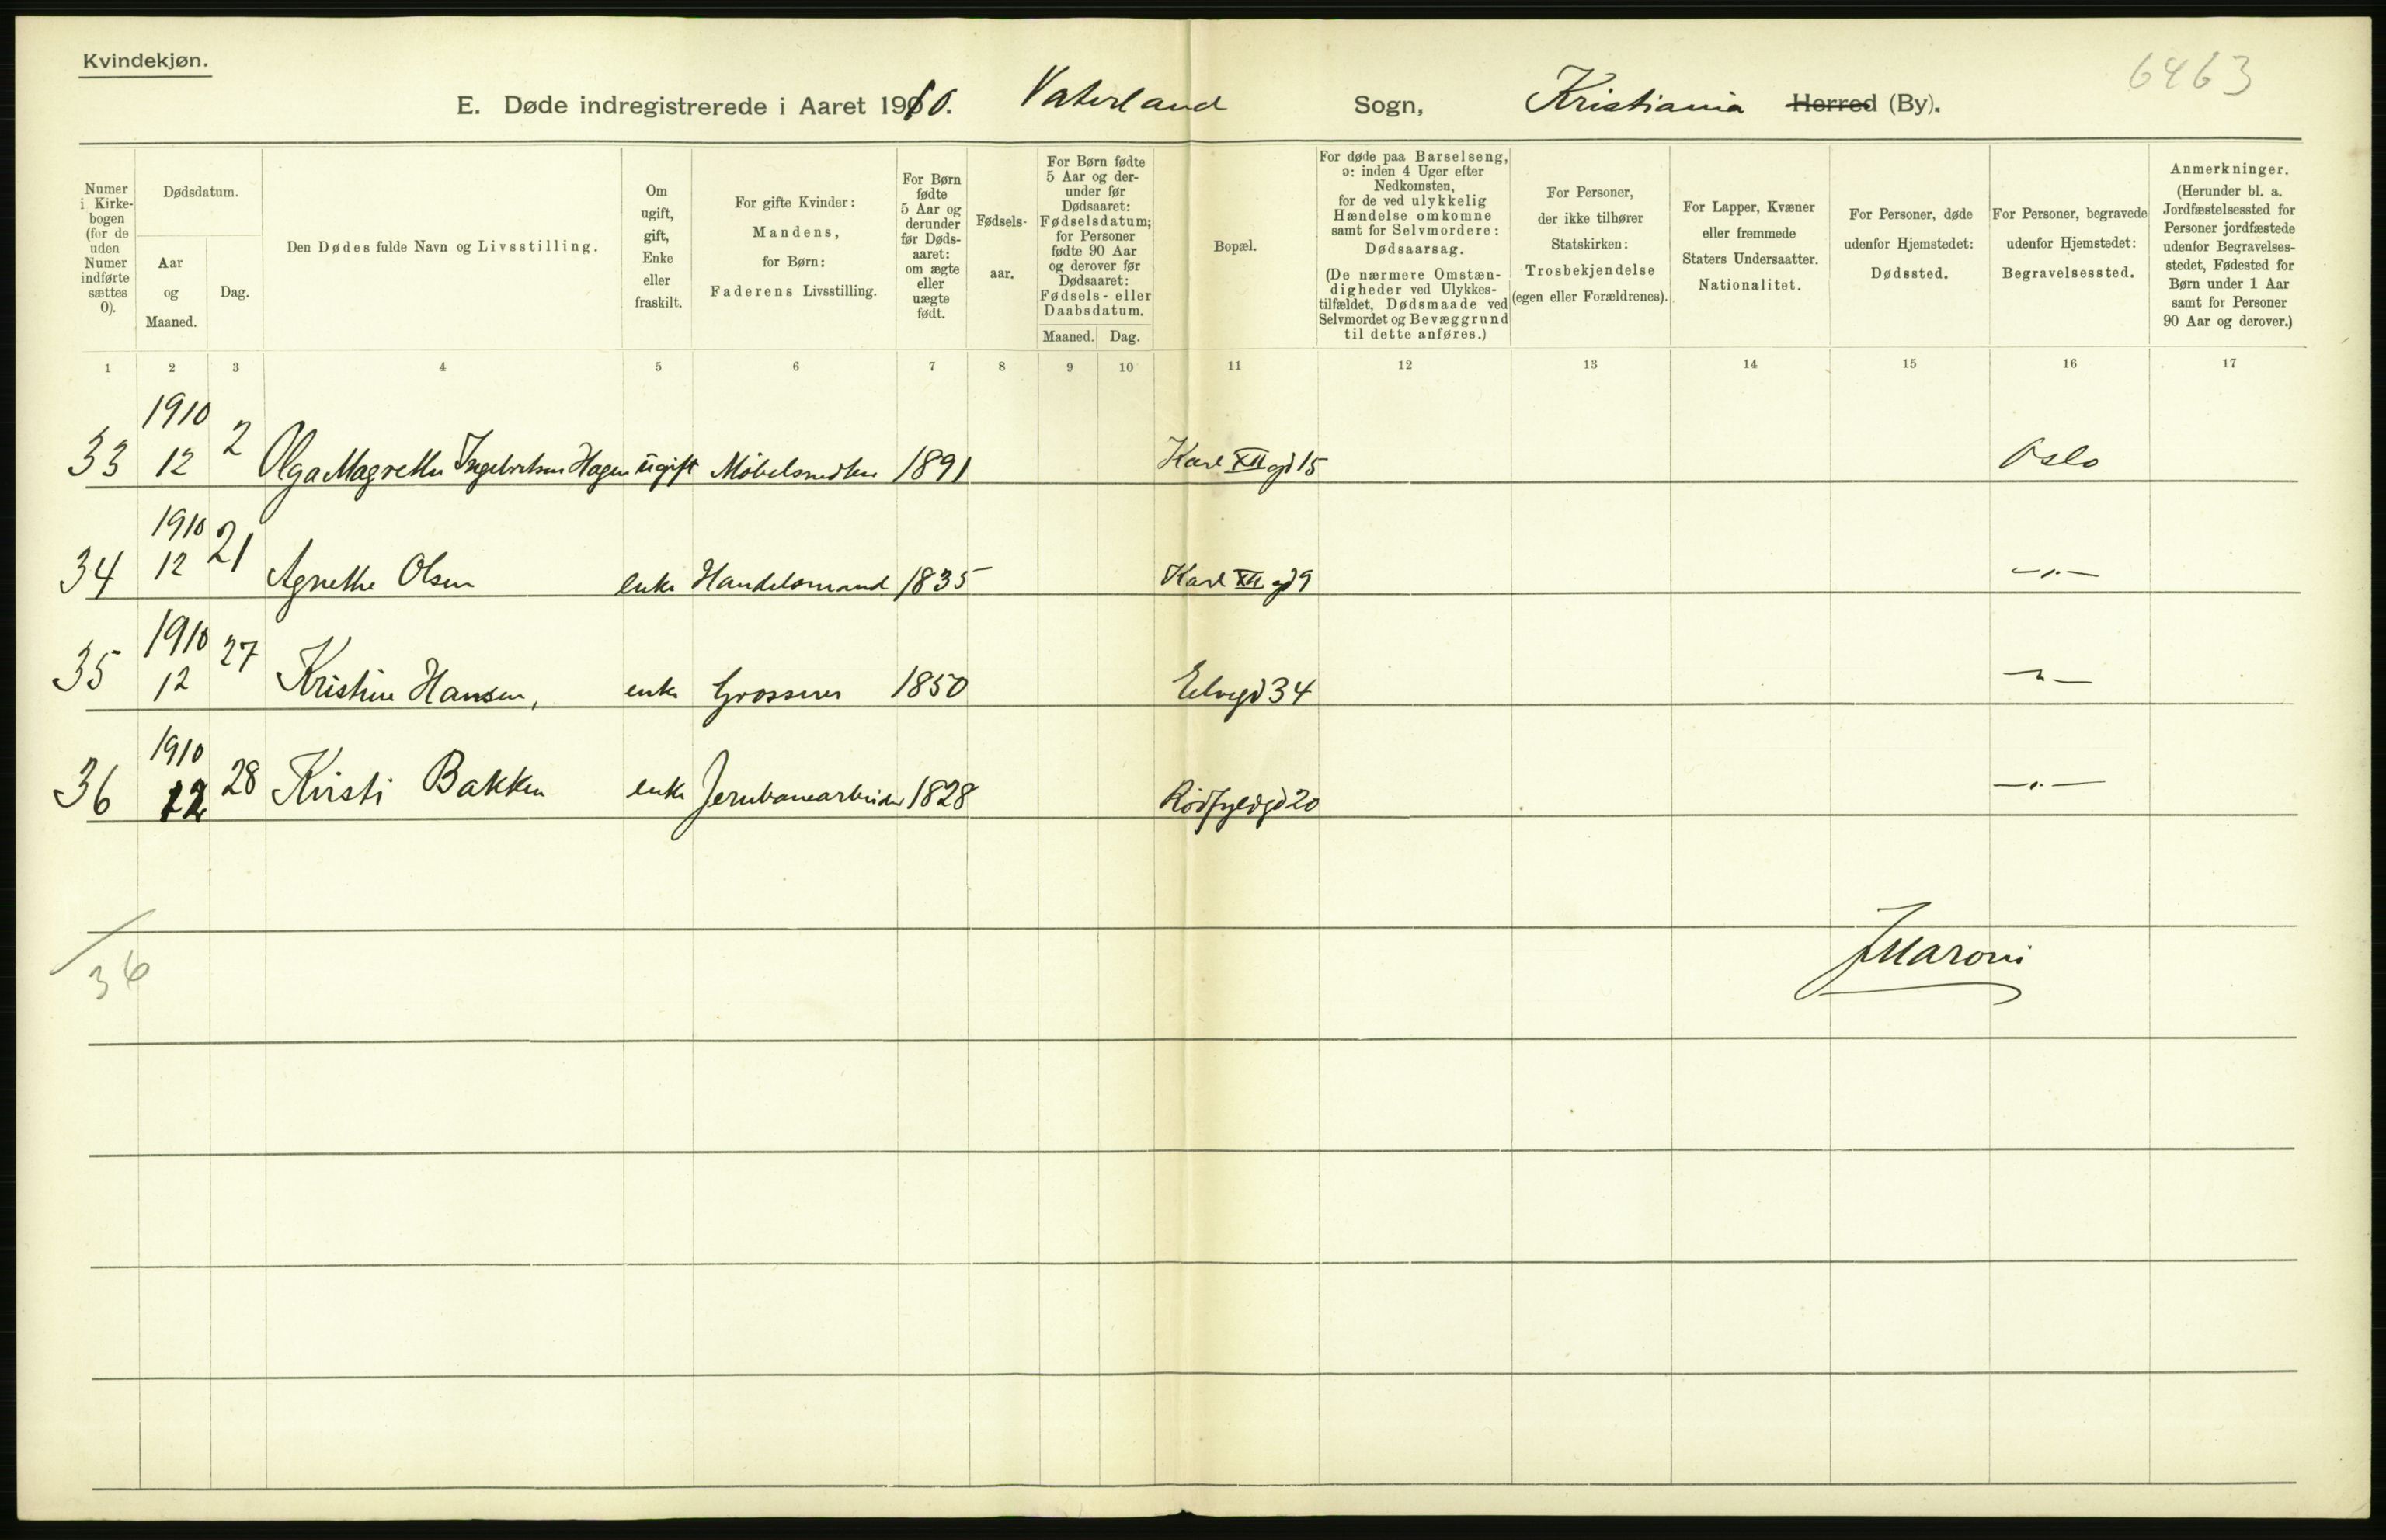 Kvindekjøn.
6463
E. Døde indregistrerede i Aaret 1910. Vaterland Sogn, Kristiania Herred (By).
Numer i Kirke-bogen (for de uden Numer indførte sættes 0).
Dødsdatum.
Aar og Maaned.
Dag.
Den Dødes fulde Navn og Livsstilling.
Om ugift, gift, Enke eller fraskilt.
For gifte Kvinder: Mandens, for Børn: Faderens Livsstilling.
For Børn fødte 5 Aar og derunder før Døds-aaret: om ægte eller uægte født.
Fødsels-aar.
For Børn fødte 5 Aar og der-under før Dødsaaret: Fødselsdatum; for Personer fødte 90 Aar og derover før Dødsaaret: Fødsels- eller Daabsdatum.
Maaned. Dag.
Bopæl.
For døde paa Barselseng, ɔ: inden 4 Uger efter Nedkomsten, for de ved ulykkelig Hændelse omkomne samt for Selvmordere: Dødsaarsag. (De nærmere Omstæn-digheder ved Ulykkes-tilfældet, Dødsmaade ved Selvmordet og Bevæggrund til dette anføres.)
For Personer, der ikke tilhører Statskirken: Trosbekjendelse (egen eller Forældrenes).
For Lapper, Kvæner eller fremmede Staters Undersaatter. Nationalitet.
For Personer, døde udenfor Hjemstedet: Dødssted.
For Personer, begravede udenfor Hjemstedet: Begravelsessted.
Anmerkninger. (Herunder bl. a. Jordfæstelsessted for Personer jordfæstede udenfor Begravelses-stedet, Fødested for Børn under 1 Aar samt for Personer 90 Aar og derover.)
1 2 3 4 5 6 7 8 9 10 11 12 13 14 15 16 17
1910
33 12 2 Olga Magrethe Ingebretsen Hagen ugift Møbelsnedker 1891 Karl XII gd 15 Oslo
1910
34 12 21 Agnethe Olsen enke Handelsmand 1835 Karl XII gd 9 —〃—
1910
35 12 27 Kristine Hansen, enke Grosserer 1850 Elvegd 34 —〃—
1910
36 12 28 Kirsti Bakken enke Jernbanearbeider 1828 Rødfyldgd 20 —〃—
JMaroni
36